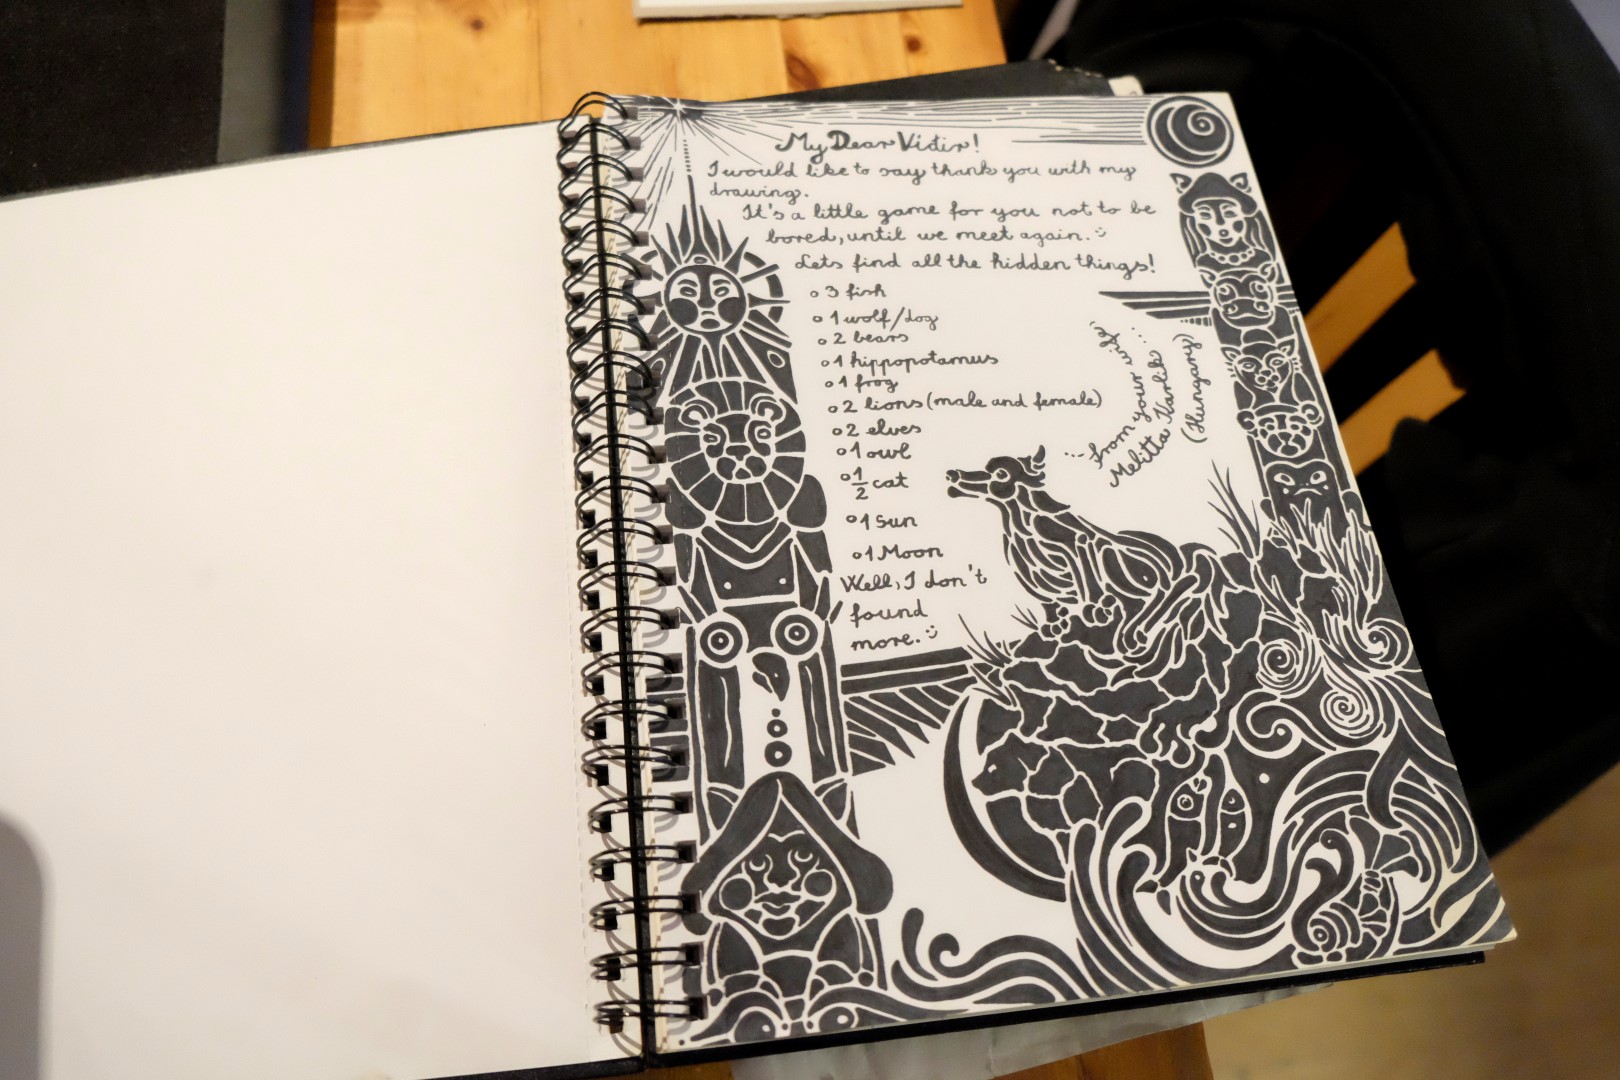 My Dear Vidir!
I would like to say thank you with my
drawing.
It's a little game for you not to be
bored, until we meet again. :)
Lets find all the hidden things!
o 3 fish
o 1 wolf/dog
o 2 bears
o 1 hippopotamus
o 1 frog
o 2 lions (male and female)
o 2 elves
o 1 owl
o 1/2 cat
o 1 Sun
o 1 Moon
Well, I don't
found
more. :)
... from your wife ...
Melitta Karlik
(Hungary)